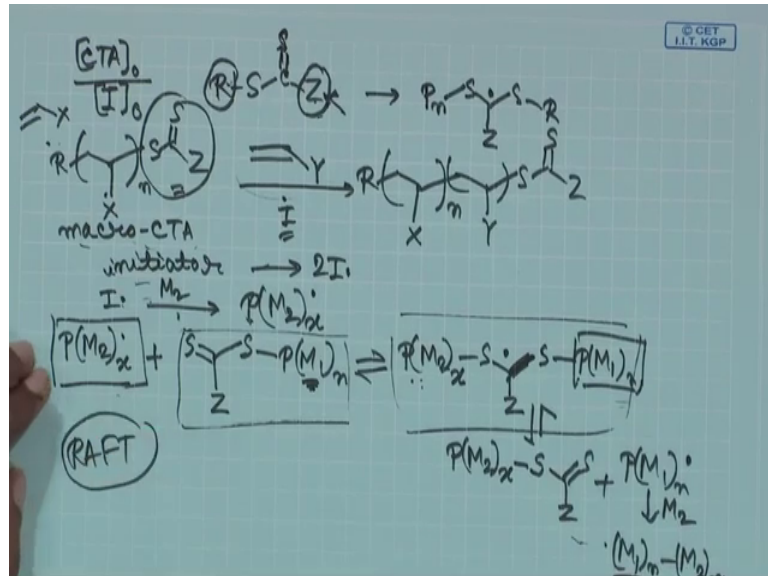 © CET
I.I.T. KGP
[CTA]₀
[I]₀
R-S-C-Z
S
→ Pn-S-Ċ-S-R
Z
X
R( )n S S Z
X
Y
İ
R( )n( ) S S Z
X Y
macro-CTA
initiator → 2I·
I· M₂ → P(M₂)ẋ
P(M₂)ẋ + S S-P(M₁)n ⇌ P(M₂)x-S · S-P(M₁)n
Z Z
RAFT
P(M₂)x-S S + P(M₁)n·
Z
↓M₂
·(M₁)n-(M₂)